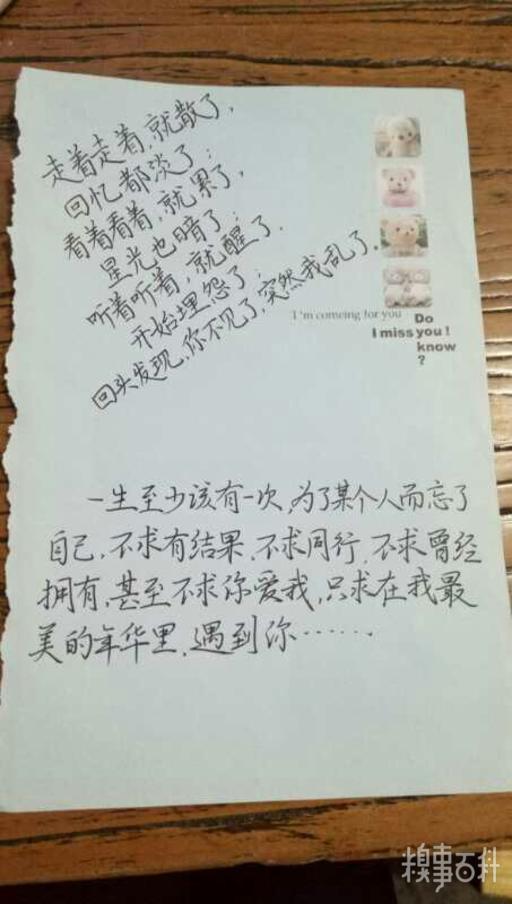 走着走着,就散了,
回忆都淡了;
看着看着,就累了,
星光也暗了;
听着听着,就醒了,
开始埋怨了;
回头发现,你不见了,突然我乱了。
I'm comeing for you
Do
I miss you!
know
?
一生至少该有一次,为了某个人而忘了
自己,不求有结果,不求同行,不求曾经
拥有,甚至不求你爱我,只求在我最
美的年华里,遇到你……
糗事百科